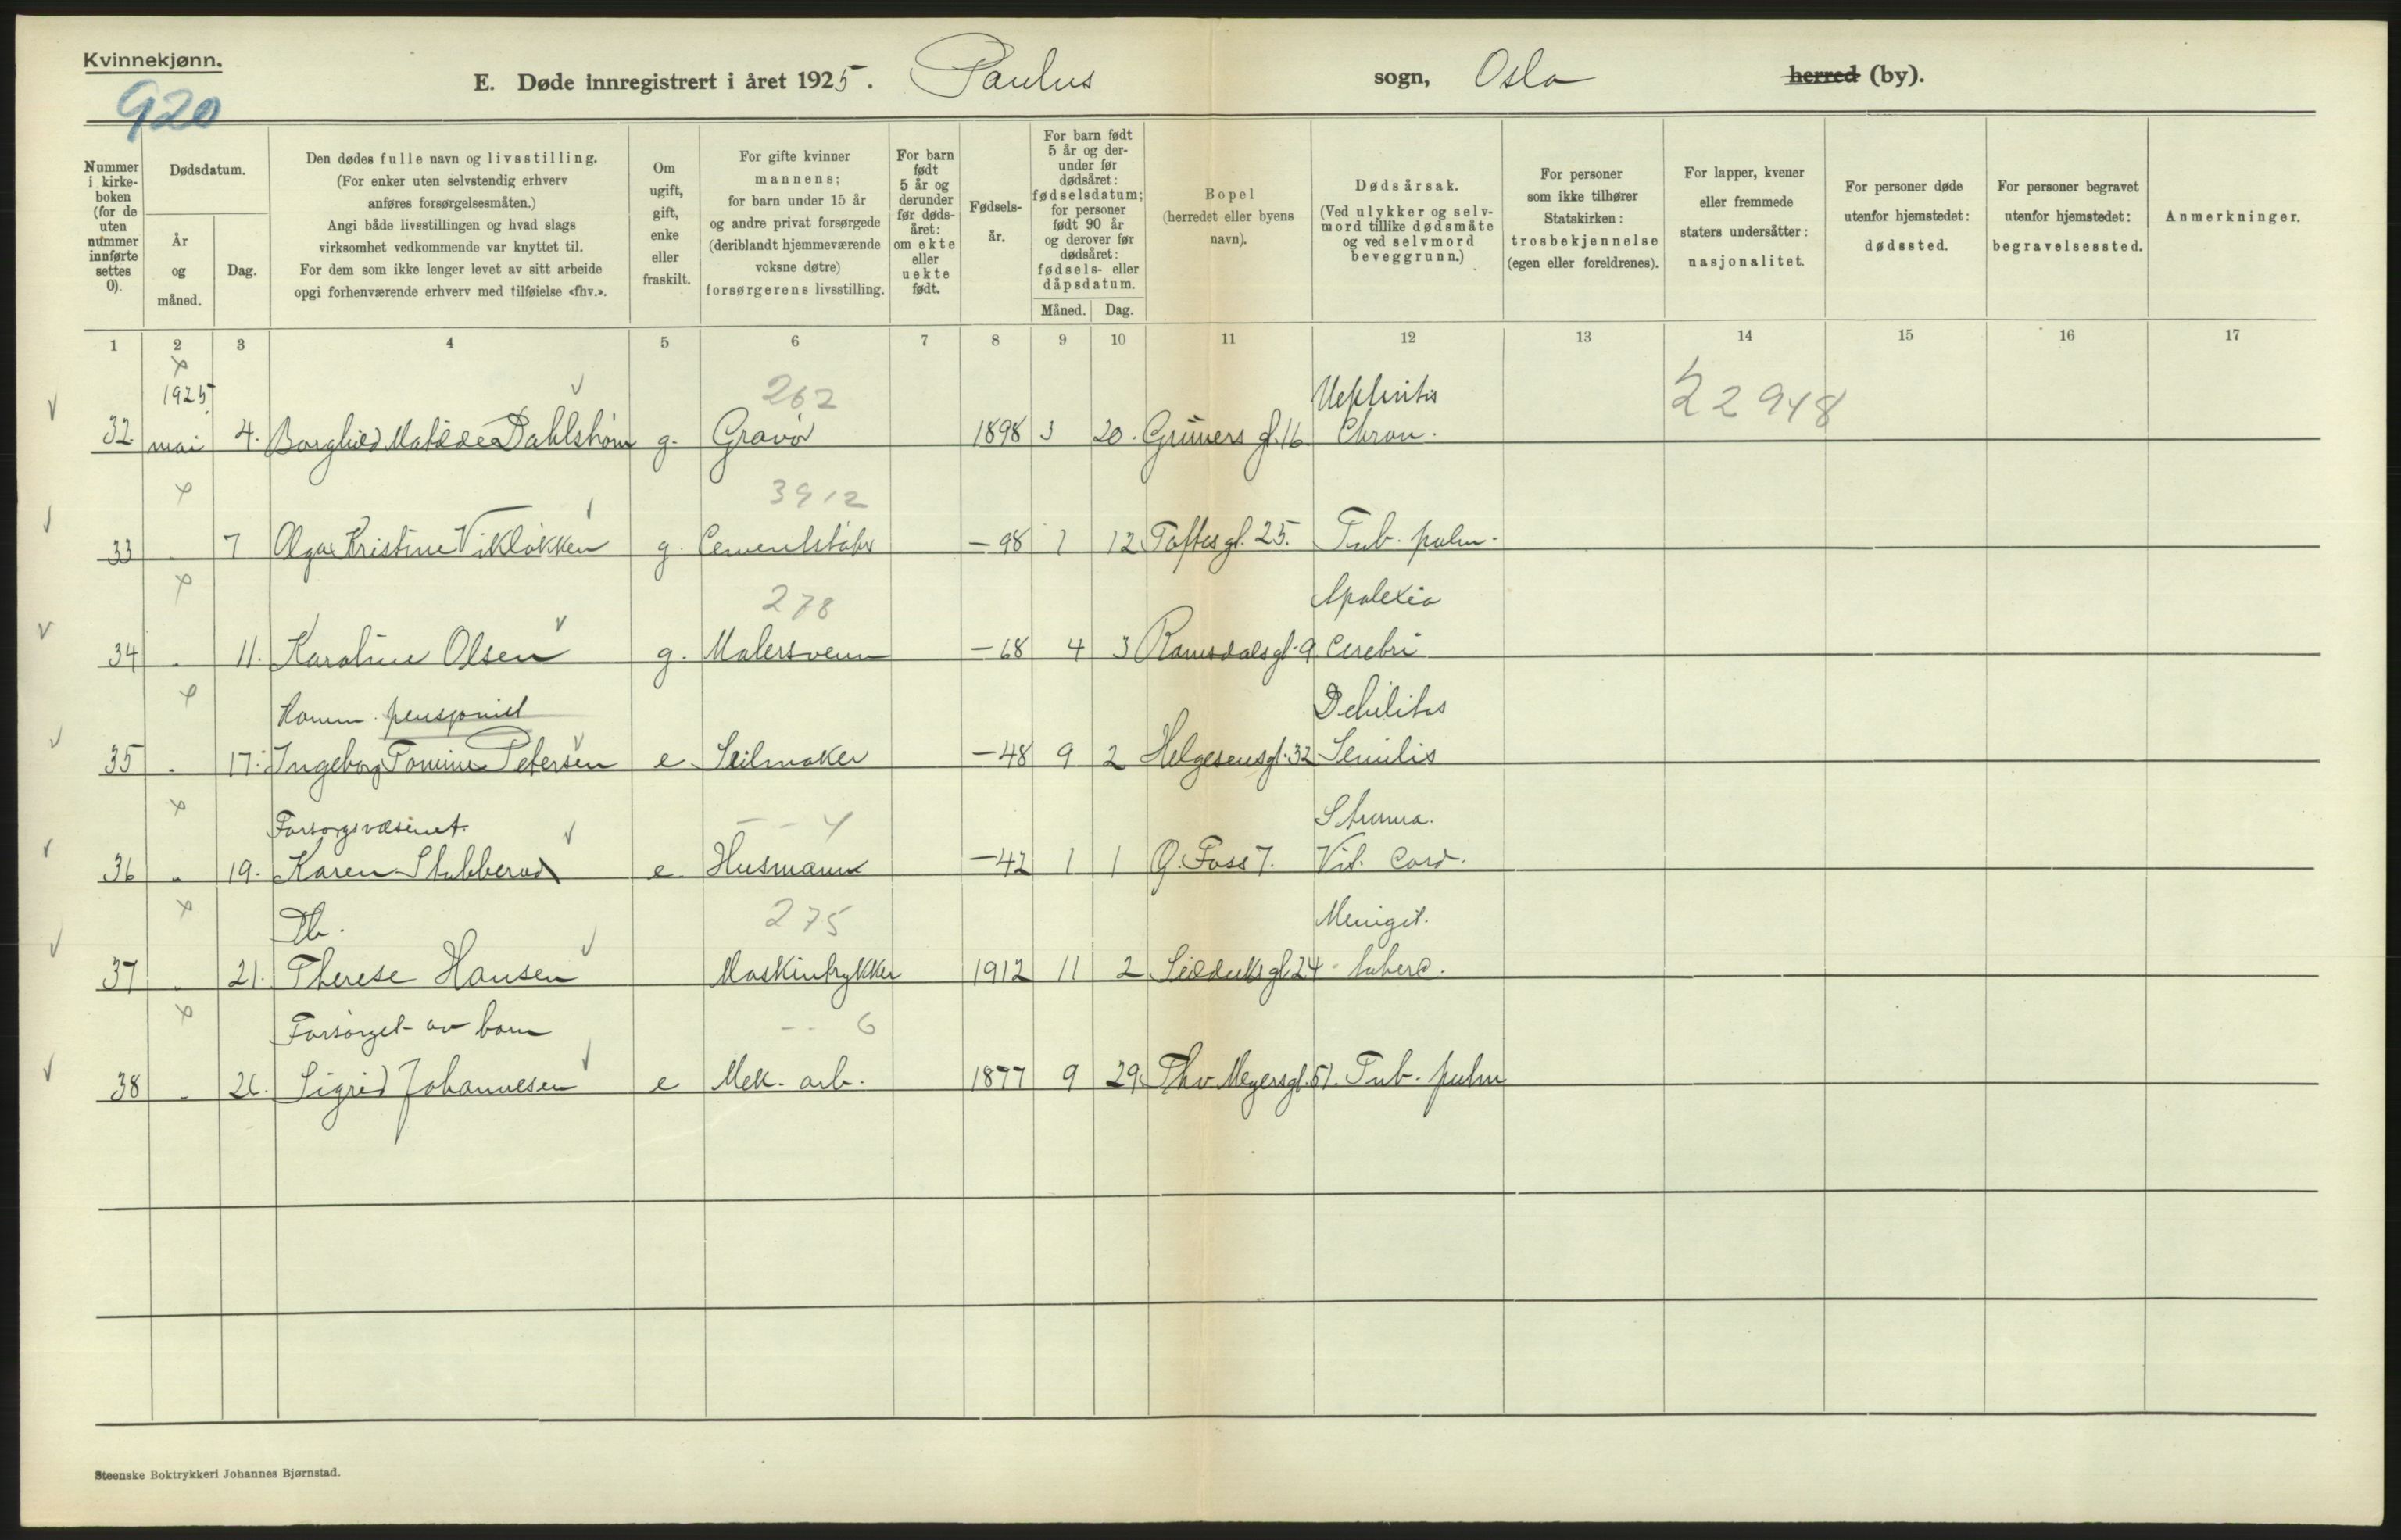 Kvinnekjønn.
920
E. Døde innregistrert i året 1925. Paulus sogn, Oslo herred (by).
Nummer i kirke-boken (for de uten nummer innførte settes 0).
Dødsdatum.
År og måned.
Dag.
Den dødes fulle navn og livsstilling.
(For enker uten selvstendig erhverv
anføres forsørgelsesmåten.)
Angi både livsstillingen og hvad slags
virksomhet vedkommende var knyttet til.
For dem som ikke lenger levet av sitt arbeide
opgi forhenværende erhverv med tilføielse «fhv.».
Om ugift, gift, enke eller fraskilt.
For gifte kvinner
mannens;
for barn under 15 år
og andre privat forsørgede
(deriblandt hjemmeværende
voksne døtre)
forsørgerens livsstilling.
For barn født 5 år og derunder før døds-året: om ekte eller uekte født.
Fødsels-år.
For barn født 5 år og der-under før dødsåret: fødselsdatum; for personer født 90 år og derover før dødsåret: fødsels- eller dåpsdatum.
Måned. Dag.
Bopel
(herredet eller byens
navn).
Dødsårsak.
(Ved ulykker og selv-
mord tillike dødsmåte
og ved selvmord
beveggrunn.)
For personer
som ikke tilhører
Statskirken:
trosbekjennelse
(egen eller foreldrenes).
For lapper, kvener
eller fremmede
staters undersåtter:
nasjonalitet.
For personer døde
utenfor hjemstedet:
dødssted.
For personer begravet
utenfor hjemstedet:
begravelsessted.
Anmerkninger.
1 2 3 4 5 6 7 8 9 10 11 12 13 14 15 16 17
1925 262 Nephritis 22948
32 mai 4. Borghild Matilde Dahlstrøm g. Gravør 1898 3 20. Grüners gt. 16. Chron.
3912
33 . 7 Olga Kristine Vikløkken g. Cementstøper -98 1 12 Toftes gt. 25. Tub. pulm.
278 Apolexia
34 . 11. Karoline Olsen g. Malersvenn -68 4 3 Romsdalsgt. 9. Cerebri
Komm. pensjonist Debilitas
35 . 17. Ingeborg Petersen e Seilmaker -48 9 2 Helgesensgt. 32 Senilis
Forsorgsvæsenet. - - 4 Struma.
36 . 19. Karen Stubberud e Husmann -42 1 1 Ø. Foss 7. Vit. Cord.
Db. 275 Meningit.
37 . 21. Therese Hansen Maskintrykker 1912 11 2 Seilduksgt 24 tuberc.
Forsørget av barn - - 6
38 . 26. Sigrid Johannesen e Mek. arb. 1877 9 29. Thv. Meyersgt. 51. Tub. pulm
Steenske Boktrykkeri Johannes Bjørnstad.